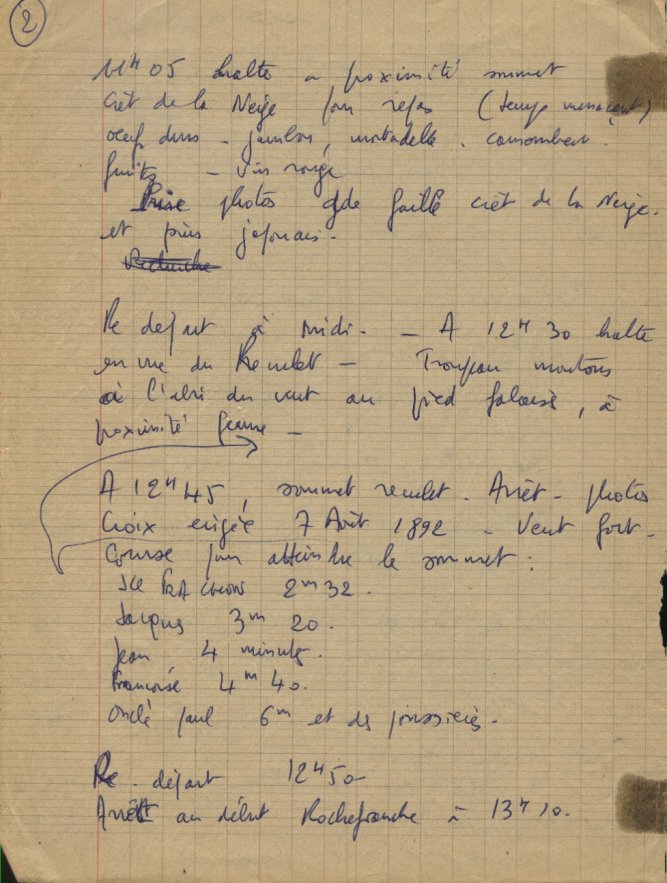 2
11H05 halte a proximité sommet
Crêt de la Neige pour repas (temps menaçant)
oeufs durs - jambon, mortadelle. camembert.
fruits - vin rouge
Prise photos gde faille crêt de la Neige.
et pins japonais.
Recherche
Re depart à midi. - A 12H30 halte
en vue du Reculet - Troupeau moutons
à l'abri du vent au pied falaise, à
proximité ferme -
A 12H45, sommet reculet. Arrêt - photos
Croix erigée 7 Août 1892 - Vent fort.
Course pour atteindre le sommet :
2m32.
Jacques 3m 20.
Jean 4 minutes.
Françoise 4m 40.
Oncle Paul 6m et des poussières.
Re - départ 12H50
Arrêt au début Rochefranche à 13H10.